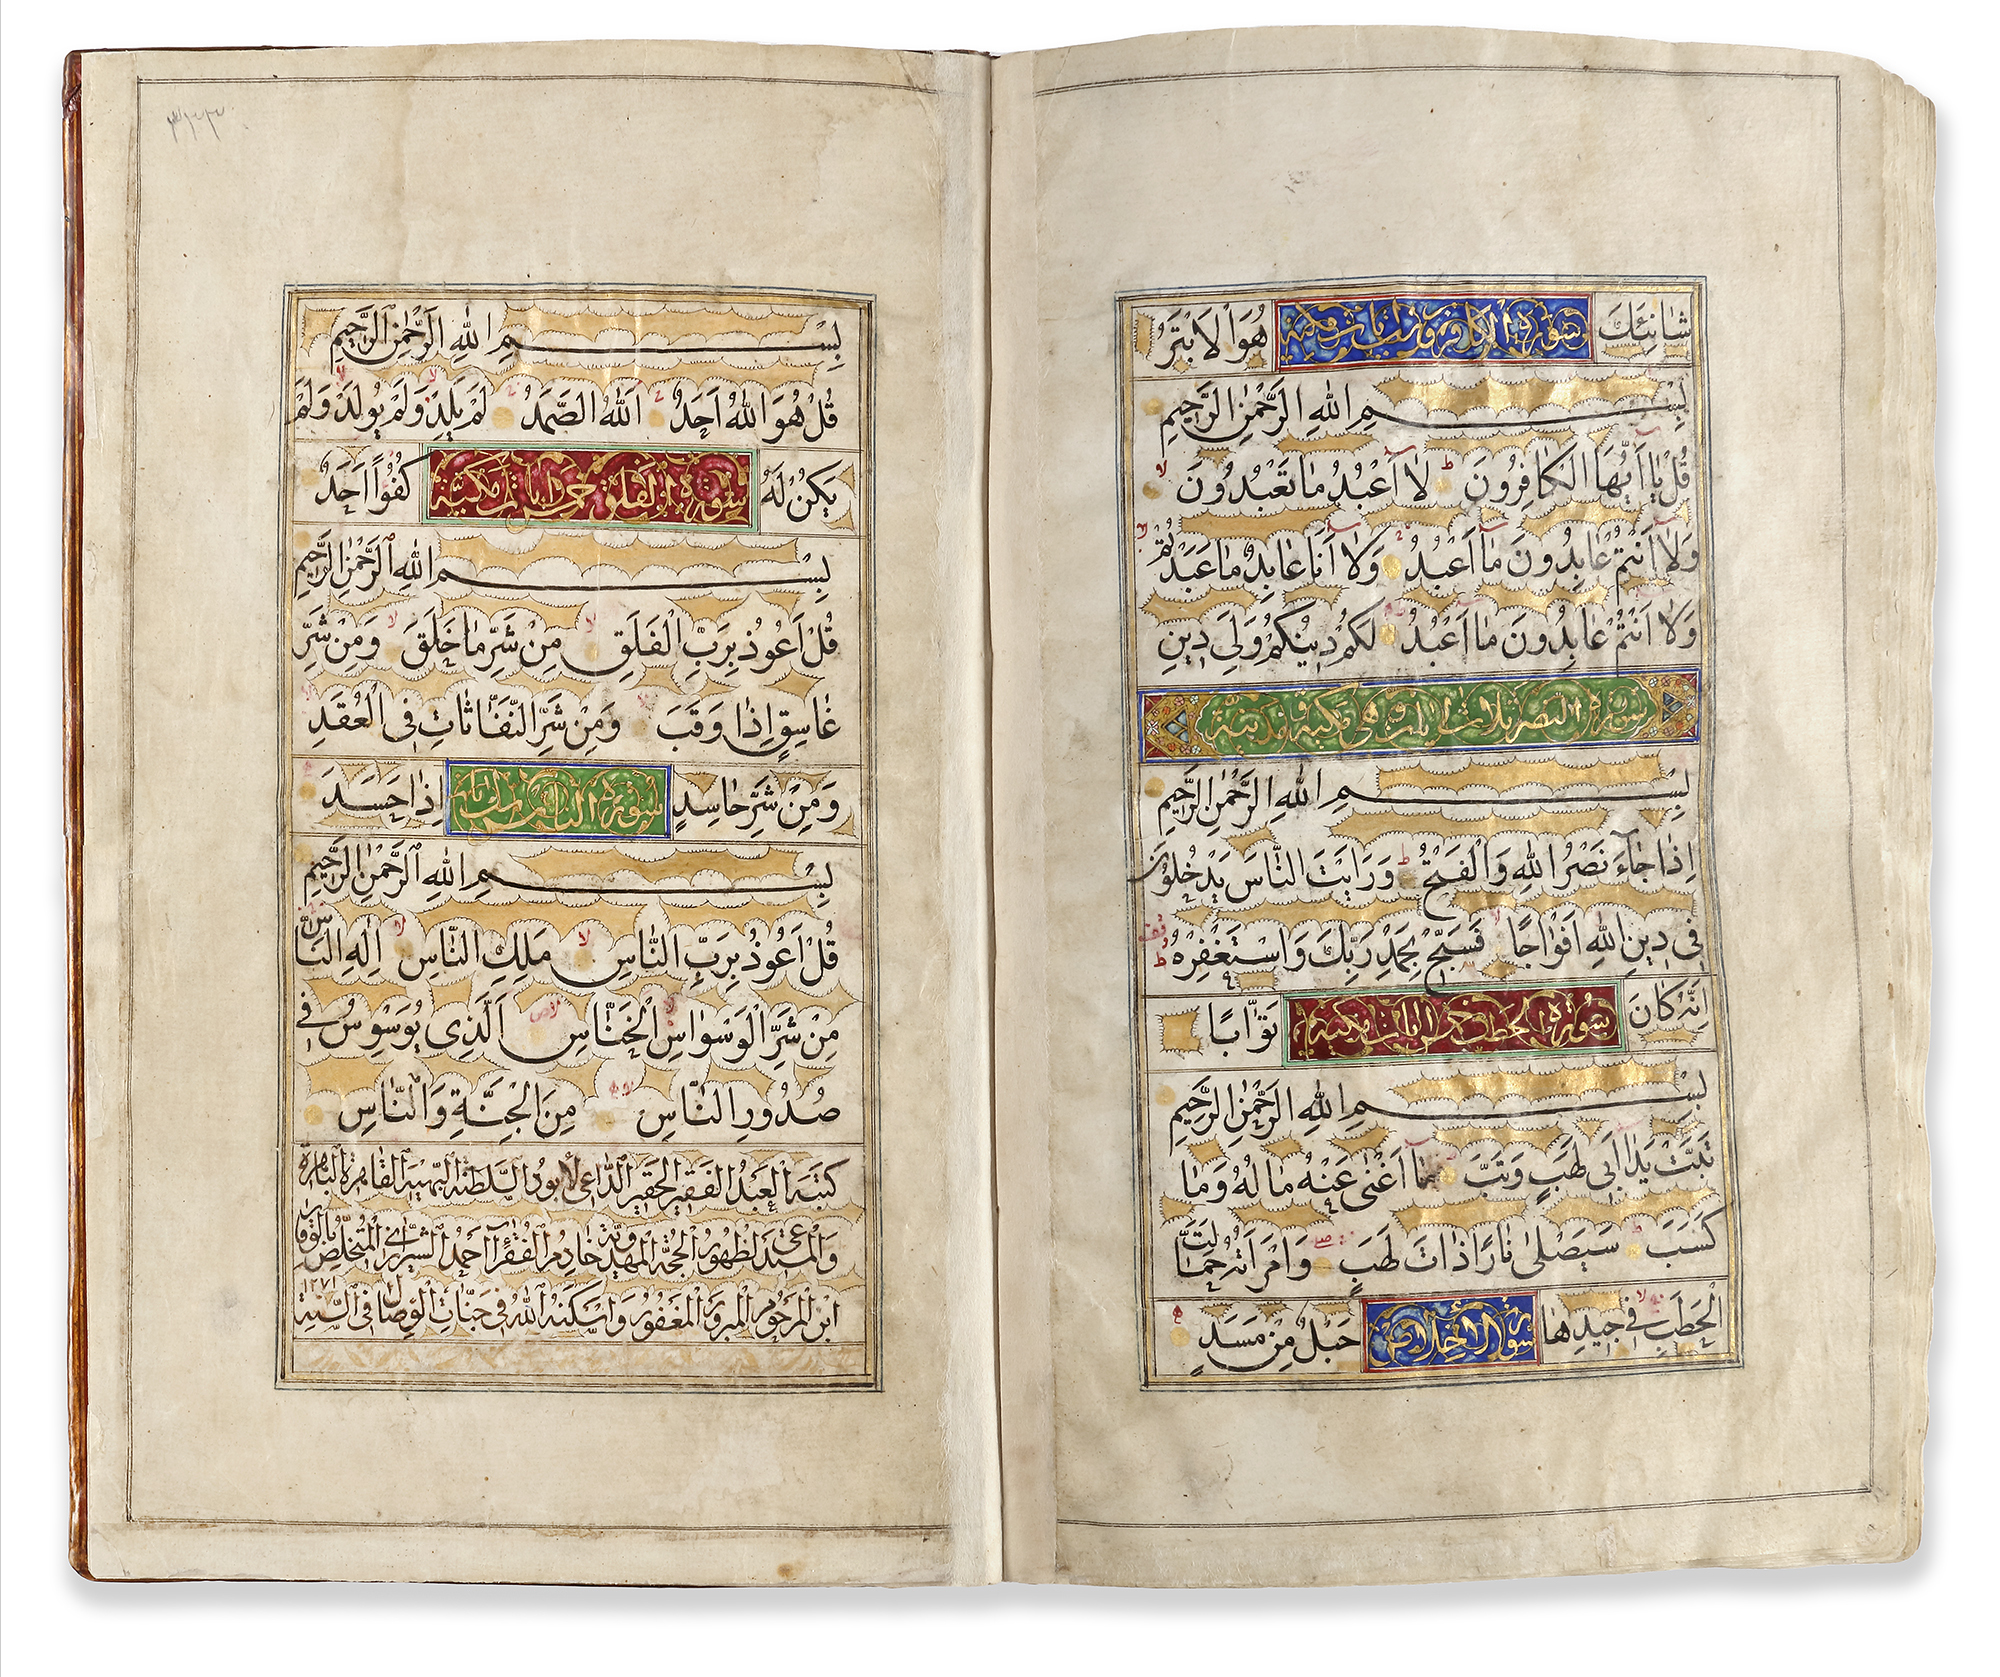 شَانِئَكَ سورة الكافرون ست آيات مكية هُوَ الْاَبْتَرُ
بِسْمِ اللهِ الرَّحْمٰنِ الرَّحِيمِ
قُلْ يٰا اَيُّهَا الْكٰافِرُونَ لٰا اَعْبُدُ مٰا تَعْبُدُونَ
وَلٰا اَنْتُمْ عٰابِدُونَ مٰا اَعْبُدُ وَلٰا اَنَا عٰابِدٌ مٰا عَبَدْتُمْ
وَلٰا اَنْتُمْ عٰابِدُونَ مٰا اَعْبُدُ لَكُمْ دِينُكُمْ وَلِيَ دِينِ
سورة النصر ثلاث ايات وهي مكية ومدنية
بِسْمِ اللهِ الرَّحْمٰنِ الرَّحِيمِ
اِذٰا جٰٓاءَ نَصْرُ اللهِ وَالْفَتْحُ وَرَاَيْتَ النّٰاسَ يَدْخُلُونَ
فِي دِينِ اللهِ اَفْوٰاجًا فَسَبِّحْ بِحَمْدِ رَبِّكَ وَاسْتَغْفِرْهُ
اِنَّهُ كٰانَ سورة الحطب خمس ايات مكية تَوّٰابًا
بِسْمِ اللهِ الرَّحْمٰنِ الرَّحِيمِ
تَبَّتْ يَدٰا اَبِي لَهَبٍ وَتَبَّ مٰا اَغْنٰى عَنْهُ مٰا لُهُ وَمٰا
كَسَبَ سَيَصْلٰى نٰارًا ذٰاتَ لَهَبٍ وَامْرَاَتُهُ حَمّٰالَةَ
الْحَطَبِ فِي جِيدِهٰا سورة الاخلاص حَبْلٌ مِنْ مَسَدٍ
٣١٢٣
بِسْمِ اللهِ الرَّحْمٰنِ الرَّحِيمِ
قُلْ هُوَ اللهُ اَحَدٌ اَللهُ الصَّمَدُ لَمْ يَلِدْ وَلَمْ يُولَدْ وَلَمْ
يَكُنْ لَهُ سورة الفلق خمس ايات مكية كُفُوًا اَحَدٌ
بِسْمِ اللهِ الرَّحْمٰنِ الرَّحِيمِ
قُلْ اَعُوذُ بِرَبِّ الْفَلَقِ مِنْ شَرِّ مٰا خَلَقَ وَمِنْ شَرِّ
غٰاسِقٍ اِذٰا وَقَبَ وَمِنْ شَرِّ النَّفّٰاثٰاتِ فِي الْعُقَدِ
وَمِنْ شَرِّ حٰاسِدٍ سورة الناس ست ايات اِذٰا حَسَدَ
بِسْمِ اللهِ الرَّحْمٰنِ الرَّحِيمِ
قُلْ اَعُوذُ بِرَبِّ النّٰاسِ مَلِكِ النّٰاسِ اِلٰهِ النّٰاسِ
مِنْ شَرِّ الْوَسْوٰاسِ الْخَنّٰاسِ اَلَّذِي يُوَسْوِسُ فِي
صُدُورِ النّٰاسِ مِنَ الْجِنَّةِ وَالنّٰاسِ
كتبه العبد الفقير الحقير الداعي لابود السلطنة البهية القاهرة الباهرة
والمستدعي لظهور الحجة المهدوية خادم الفقراء احمد الشيرازي المتخلص بالوقار
ابن المرحوم المبرور المغفور واسكنه الله في جنات الوصال في السنة ١٢٧١